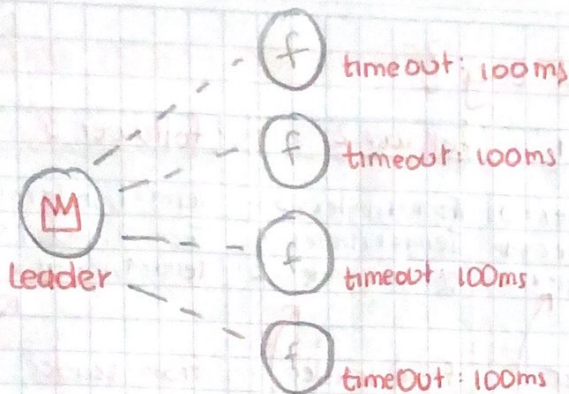 f
timeout: 100ms
f
timeout: 100ms
Leader
f
timeout 100ms
f
timeOut: 100ms